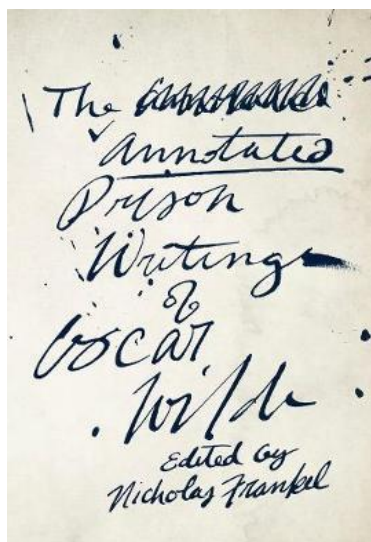 The
Annotated
Prison
Writings
of
Oscar
Wilde
Edited by
Nicholas Frankel